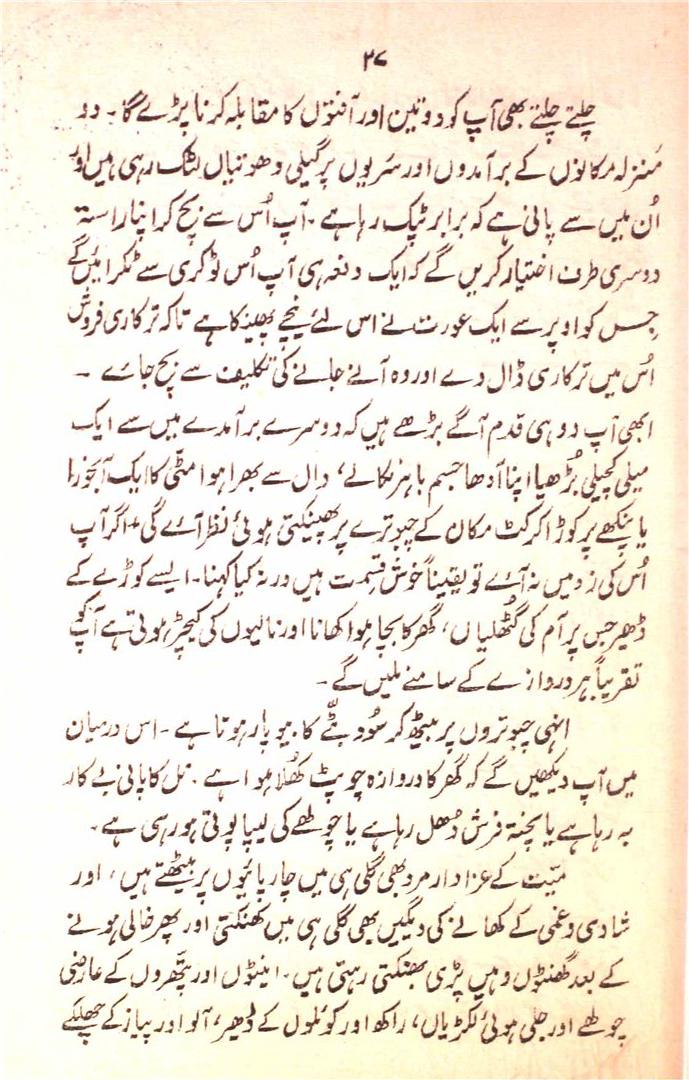 ۳۷
چلتے چلتے بھی آپ کو دو تین اور آفتوں کا مقابلہ کرنا پڑے گا۔ دو
منزلہ مکانوں کے برآمدوں اور سَریوں پر گیلی دھوتیاں لٹک رہی ہیں اور
اُن میں سے پانی ہے کہ برابر ٹپک رہا ہے۔ آپ اُس سے بچ کر اپنا راستہ
دوسری طرف اختیار کریں گے کہ ایک دفعہ ہی آپ اُس ٹوکری سے ٹکرائیں گے
جِس کو اوپر سے ایک عورت نے اس لئے نیچے پھینکا ہے تاکہ ترکاری فروش
اُس میں ترکاری ڈال دے اور وہ آنے جانے کی تکلیف سے بچ جائے ۔
ابھی آپ دو ہی قدم آگے بڑھے ہیں کہ دوسرے برآمدے میں سے ایک
میلی کچیلی بُڑھیا اپنا آدھا جسم باہر نکالے، دال سے بھرا ہوا مٹی کا ایک آبخورا
یا پنکھے پر کوڑا کرکٹ مکان کے چبوترے پر پھینکتی ہوئی نظر آئے گی، اگر آپ
اُس کی زد میں نہ آئے تو یقیناً خوش قسمت ہیں ورنہ کیا کہنا۔ ایسے کوڑے کے
ڈھیر جس پر آم کی گٹھلیاں، گھر کا بچا ہوا کھانا اور نالیوں کی کیچڑ ہوتی ہے آپ کو
تقریباً ہر دروازے کے سامنے ملیں گے۔
انہی چبوتروں پر بیٹھ کر سُود بٹّے کا بیوپار ہوتا ہے۔ اس درمیان
میں آپ دیکھیں گے کہ گھر کا دروازہ چوپٹ کھُلا ہوا ہے۔ نل کا پانی بے کار
بہ رہا ہے یا پختہ فرش دُھل رہا ہے یا چولھے کی لیپا پوتی ہو رہی ہے۔
میّت کے عزادار مرد بھی گلی ہی میں چارپائیوں پر بیٹھتے ہیں، اور
شادی و غمی کے کھانے کی دیگیں بھی گلی ہی میں کھنکتی اور پھر خالی ہونے
کے بعد گھنٹوں وہیں پڑی بھنکتی رہتی ہیں۔ اینٹوں اور پتھروں کے عارضی
چولھے اور جلی ہوئی لکڑیاں، راکھ اور کوئلوں کے ڈھیر، آلو اور پیاز کے چھلکے